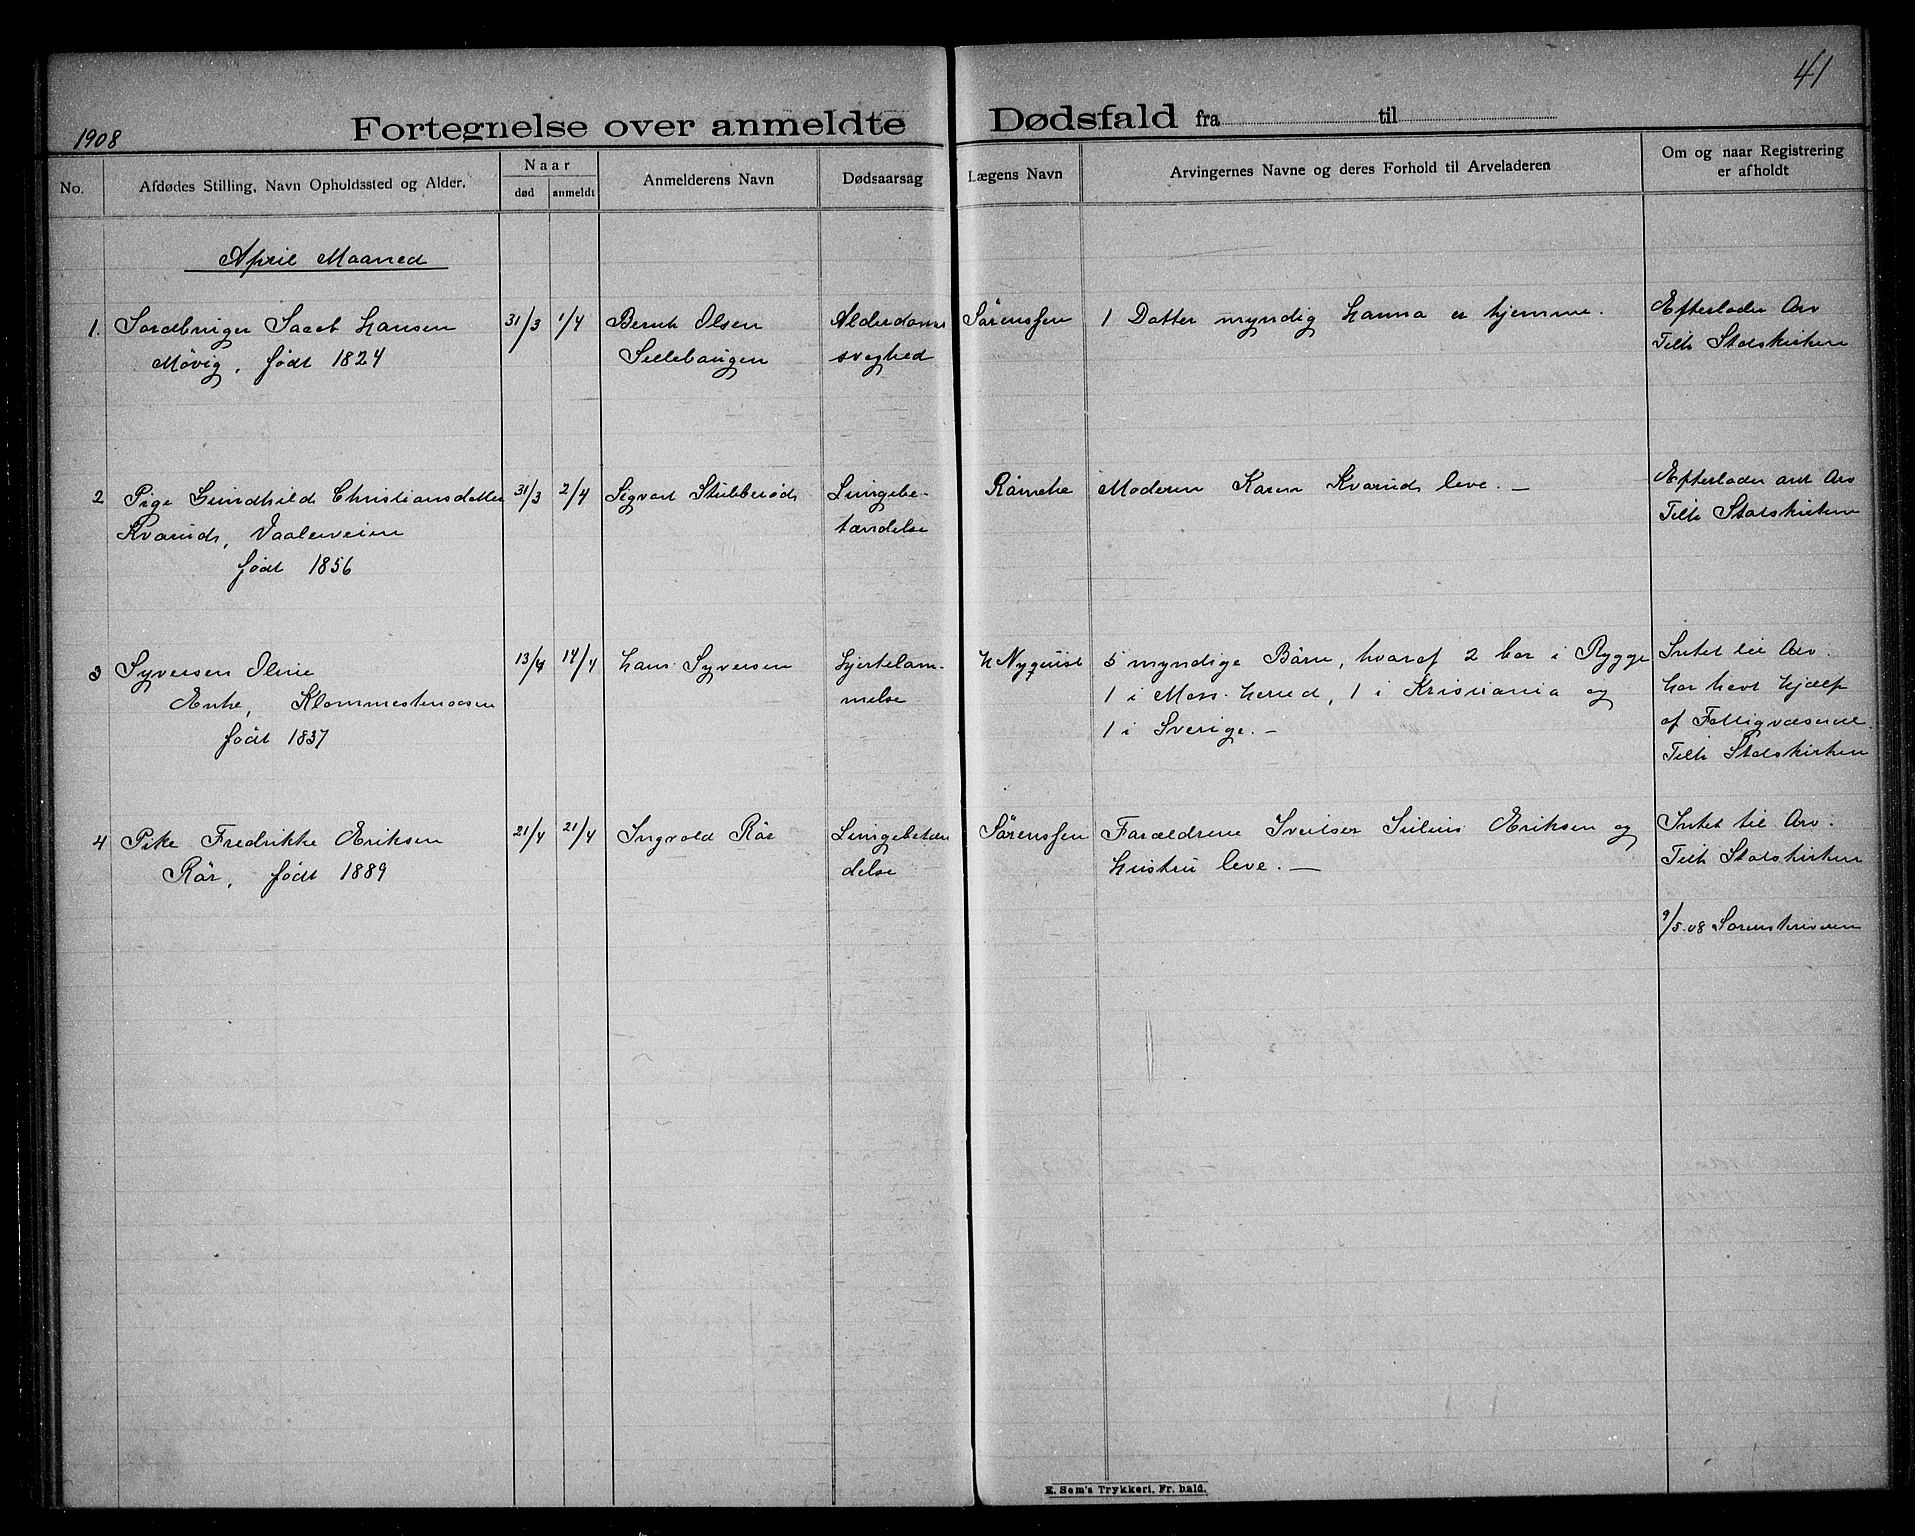 41
1908
Fortegnelse over anmeldte Dødsfald fra til
No.
Afdødes Stilling, Navn Opholdssted og Alder.
Naar
død
anmeldt
Anmelderens Navn
Dødsaarsag
Lægens Navn
Arvingernes Navne og deres Forhold til Arveladeren
Om og naar Registrering
er afholdt
April Maaned
1. Jordbruger Jacob Hansen
Møvig, født 1824
31/3
1/4
Bernh Olsen
Sillebaugen
Alderdoms
svaghed
Sørenssen
1 Datter myndig Hanna er hjemme.
Efterlader Arv
Tilh Statskirken
2 Pige Gundhild Christiansdatter
Kvarud, Vaalerveien
født 1856
31/3
2/4
Sigvart Stubberød
Lungebe-
tændelse
Rømcke
Moderen Karen Kvarud leve. —
Efterlader ant Arv
Tilh Statskirken
3 Syversen Oline
Enke, Klommestenaasen
født 1837
13/4
14/4
Hans Syversen
Hjertelam-
melse
N Nyquist
5 myndige Børn, hvoraf 2 bor i Rygge
1 i Moss herred, 1 i Kristiania og
1 i Sverige. —
Intet til Arv.
har havt Hjælp
af Fattigvæsenet
Tilh Statskirken
4 Pike Fredrikke Eriksen
Rør, født 1889
21/4
21/4
Ingvald Rør
Lungebetæn
delse
Sørenssen
Forældrene Sveitser Julius Eriksen og
Hustru leve. —
Intet til Arv.
Tilh Statskirken
9/5.08 Sorenskriveren
E. Sem's Trykkeri, Fr.hald.